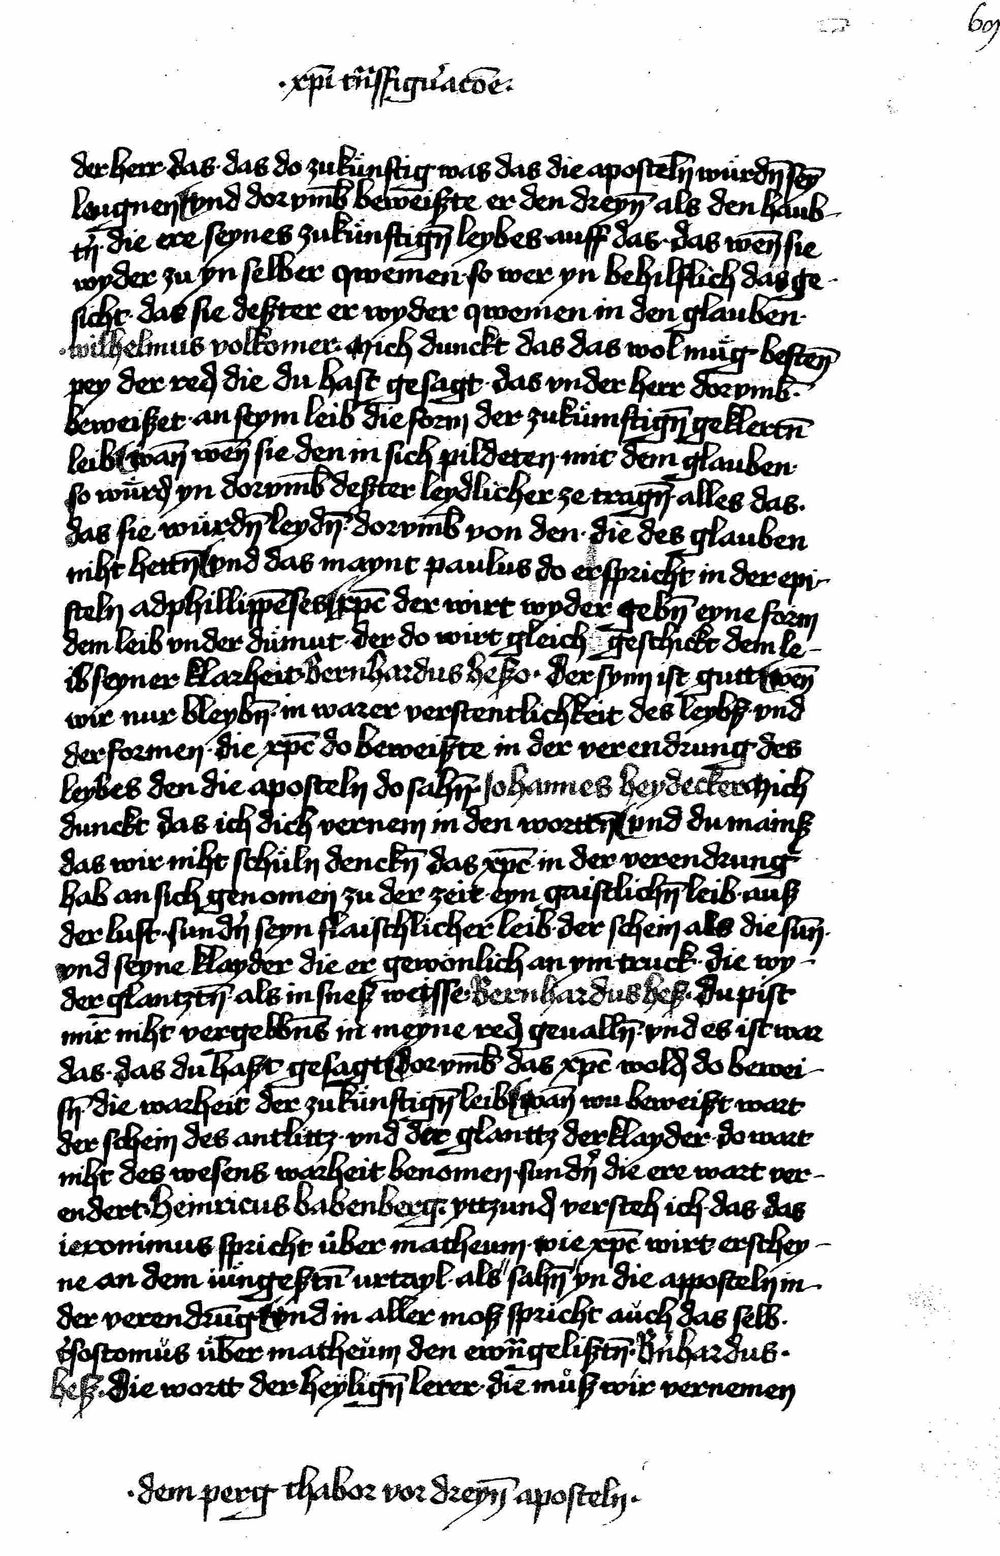 ·xp̄i trāſſiguʼacōe·
der herr· das· das do zukünftig was das die aposteln̄ würdn̄ sein̄
leugnen vnd dorvmb̄ beweiszte er den dreyn̄ als den haub-
tn̄ die ere seynes zukünftign̄ leybes· auff das· das wen̄ sie
wyder zu yn selber qwemen· so wer yn behilflich das ge-
sicht· das sie deszter er wyder qwemen in den glauben·
·wilhelmus volkomer· Mich dunckt das das wol müg besten̄
pey der red die du hast gesagt· das vnder herr dorvmb̄·
beweiszet· an seym leib die form der zukümftign̄ geklertn̄
leib wan̄ wen̄ sie den in sich pildeten· mit dem glauben·
so würd yn dorvmb̄ deszter leydlicher ze tragn̄ alles das·
das sie würdn̄ leydn̄· dorvmb̄ von den· die des glauben
niht hettn̄ vnd das maynt paulus do er spricht in der epi-
steln ad phillippēses xp̄c der wirt wyder gebn̄ eyne form
dem leib vnder dümut· der do wirt gleich geschickt dem le-
ib seyner klarheit· Bernhardus heszo· der synn ist gutt wen̄
wir nur bleybn̄· in warer verstentlichkeit des leybsz vnd
der formen· die xp̄c do beweiszte in der verendrung des
leybes den die aposteln do sahn̄· Johannes heydecker Mich
dunckt das ich dich vernem in den worttn̄ vnd du mainsz
das wir niht schüln denckn̄ das xp̄c in der verendrung
hab an sich genomen zu der zeit· eyn gaistlichn̄ leib· ausz
der luft· sundʼn seyn flaischlicher leib· der schein als die sun̄·
vnd seyne klayder die er gewonlich an ym truck· die wy-
der glantztn̄ als in snesz weisse· Bernhardus hesz· du pist
mir niht vergebbns in meyne red geualln̄· vnd es ist war
das· das du haszt gesagt dorvmb̄ das xp̄c wold do bewei-
sn̄ die warheit der zukünftign̄ leib wan̄ wu beweiszt wart
der schein des antlittz· vnd der glanttz der klayder· do wart
niht des wesens warheit benomen· sundʼn die ere wart ver-
endert· Heinricus babenberg· yttzund versteh ich· das· das
ieronimus spricht über matheum· wie xp̄c wirt erschey-
ne an dem iüngesztn̄ urtayl· als sahn̄ yn die apposteln in·
der verendrūg vnd in aller mosz spricht auch das selb·
cʼsostomus über matheum den ewāngelisztn̄· Bʼnhardus·
hesz· Die wortt der heylign̄ lerer· die müsz wir vernemen
·dem perg thabor vor dreyn̄ aposteln·